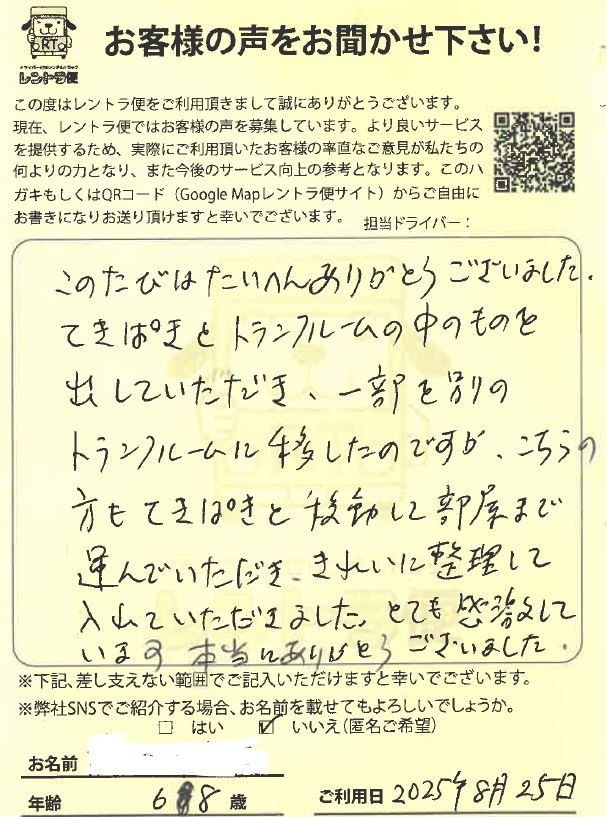 RT
ドライバー付きレンタルトラック
レントラ便
お客様の声をお聞かせ下さい!
この度はレントラ便をご利用頂きまして誠にありがとうございます。
現在、レントラ便ではお客様の声を募集しています。より良いサービス
を提供するため、実際にご利用頂いたお客様の率直なご意見が私たちの
何よりの力となり、また今後のサービス向上の参考となります。このハ
ガキもしくはQRコード（Google Mapレントラ便サイト）からご自由に
お書きになりお送り頂けますと幸いでございます。
担当ドライバー：
このたびはたいへんありがとうございました。
てきぱきとトランクルームの中のものを
出していただき、一部を別の
トランクルームに移したのですが、こちらの
方もてきぱきと移動して部屋まで
運んでいただき、きれいに整理して
入れていただきました。とても感激して
います 本当にありがとうございました。
※下記、差し支えない範囲でご記入いただけますと幸いでございます。
※弊社SNSでご紹介する場合、お名前を載せてもよろしいでしょうか。
□ はい ☑ いいえ(匿名ご希望)
お名前
年齢 68歳
ご利用日 2025年8月25日